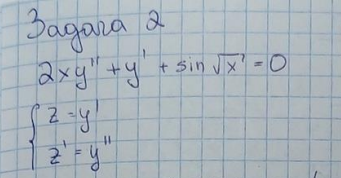 Задача 2
2xy'' + y' + sin √x = 0
{ z = y'
z' = y''